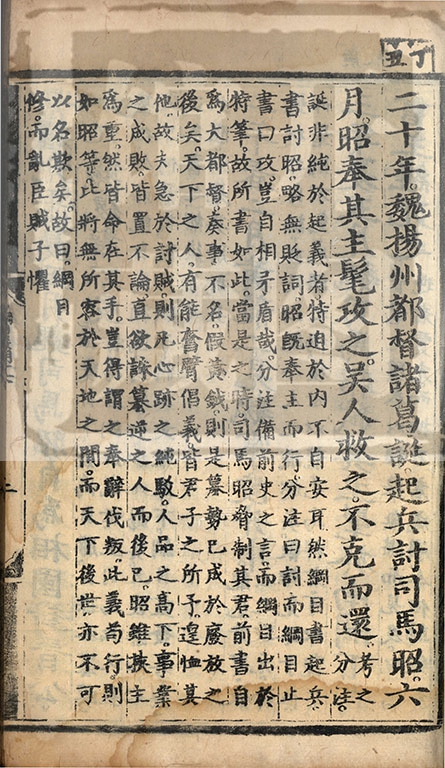 丁丑
二十年魏揚州都督諸葛誕起兵討司馬昭六
月昭奉其主髦攻之吳人救之不克而還考之分注
誕非純於起義者特迫於內不自安耳然綱目書起兵
書討昭略無貶詞昭既奉主而行分注曰討而綱目止
書曰攻豈自相矛盾哉分注備前史之言而綱目出於
特筆故所書如此當是之時司馬昭脅制其君前書自
爲大都督奏事不名假黃鉞則是篡勢已成於廢放之
後矣天下之人有能奮臂倡義皆君子之所予遑恤其
他故夫急於討賊則死心跡之純駁人品之高下事業
之成敗皆置不論直欲誅篡逆之人而後已昭雖挾主
爲重然皆命在其手豈得謂之奉辭伐叛此義苟行則
如昭等比將無所容於天地之間而天下後世亦不可
以名欺矣故曰綱目
修而亂臣賊子懼